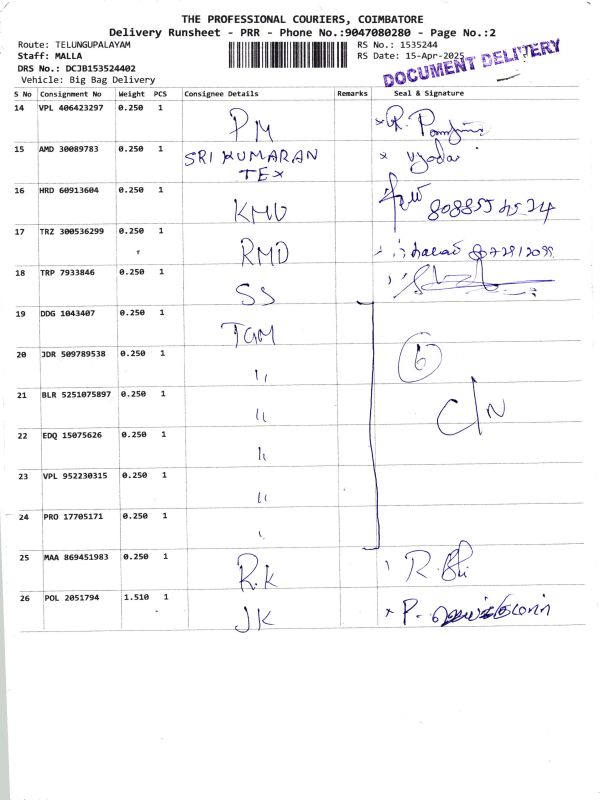 THE PROFESSIONAL COURIERS, COIMBATORE
Delivery Runsheet - PRR - Phone No.:9047080280 - Page No.:2
Route: TELUNGUPALAYAM
Staff: MALLA
DRS No.: DCJB153524402
Vehicle: Big Bag Delivery
RS No.: 1535244
RS Date: 15-Apr-2025
DOCUMENT DELIVERY
S No Consignment No Weight PCS Consignee Details Remarks Seal & Signature
14 VPL 406423297 0.250 1 PM
15 AMD 30089783 0.250 1 SRI KUMARAN
TEX
16 HRD 60913604 0.250 1 KMU
17 TRZ 300536299 0.250 1 RMD
18 TRP 7933846 0.250 1 SS
19 DDG 1043407 0.250 1 TGM
20 JDR 509789538 0.250 1 "
6
21 BLR 5251075897 0.250 1 "
C/N
22 EDQ 15075626 0.250 1 "
23 VPL 952230315 0.250 1 "
24 PRO 17705171 0.250 1
25 MAA 869451983 0.250 1 R.K
26 POL 2051794 1.510 1 JK